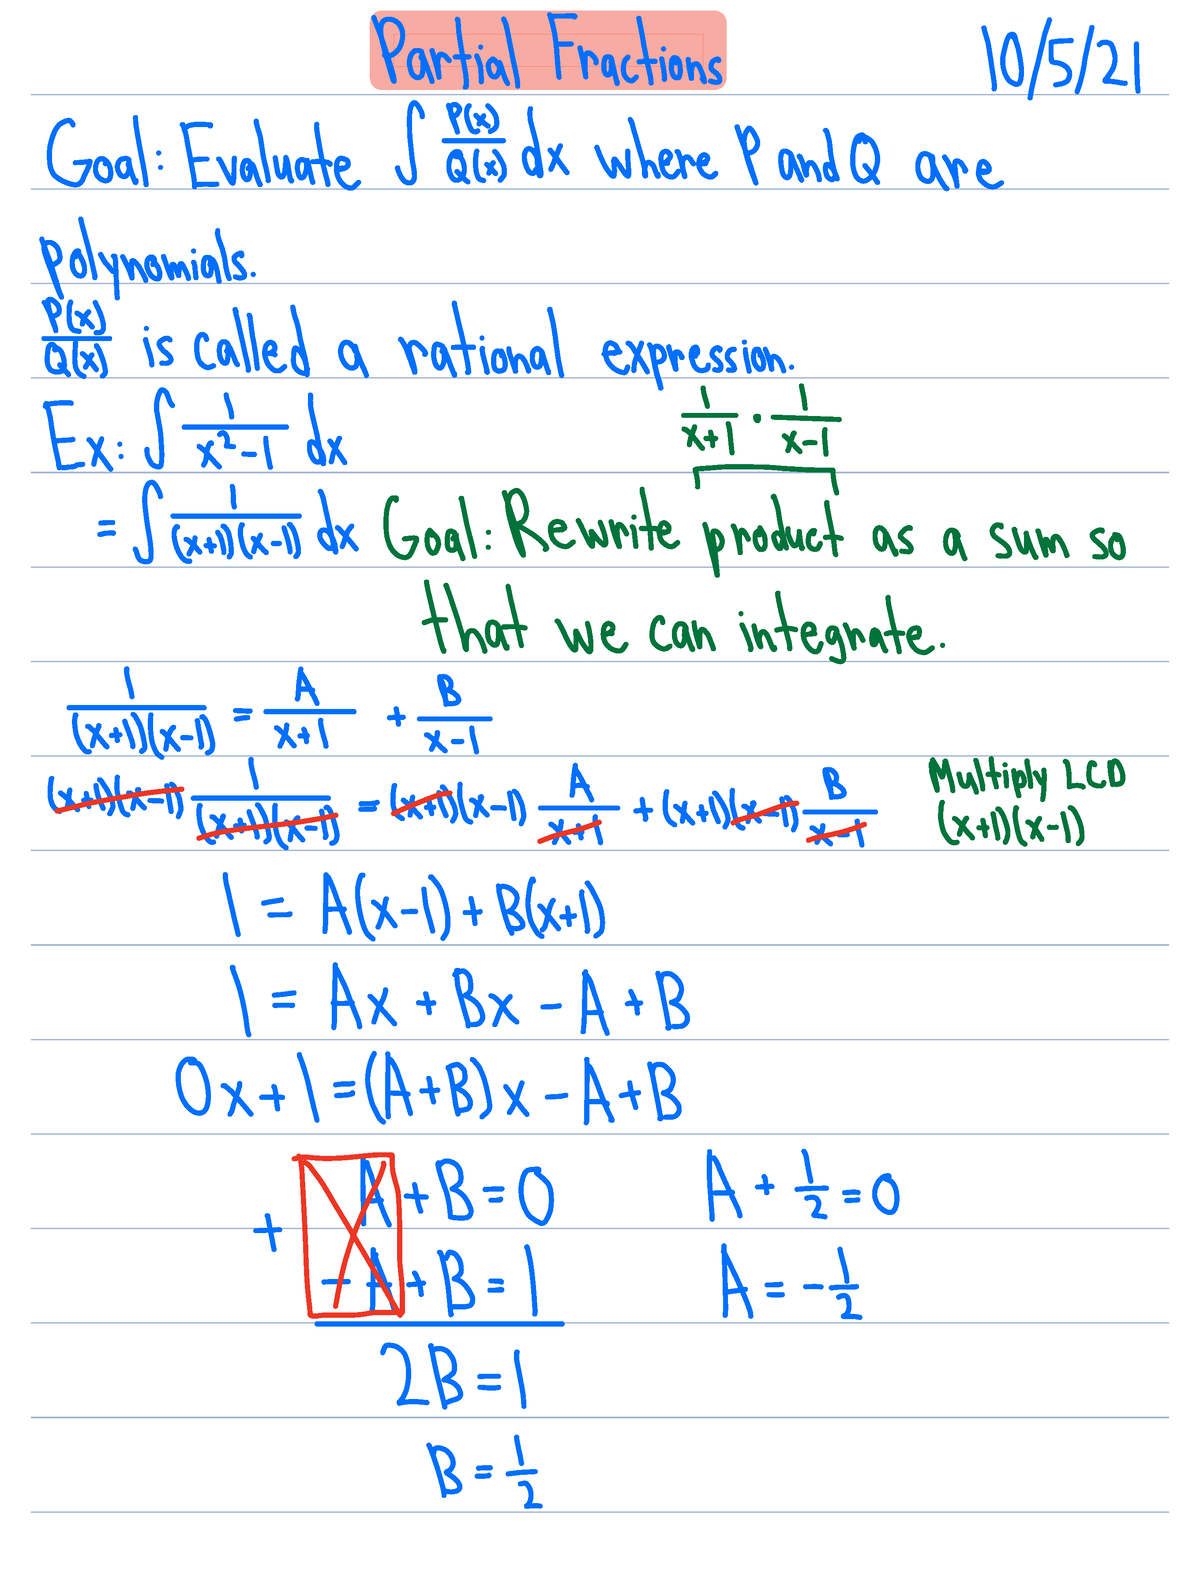 Partial Fractions 10/5/21
Goal: Evaluate ∫ P(x)/Q(x) dx where P and Q are
polynomials.
P(x)/Q(x) is called a rational expression.
Ex: ∫ 1/(x²-1) dx 1/(x+1) · 1/(x-1)
= ∫ 1/((x+1)(x-1)) dx Goal: Rewrite product as a sum so
that we can integrate.
1/((x+1)(x-1)) = A/(x+1) + B/(x-1)
(x+1)(x-1) 1/((x+1)(x-1)) = (x+1)(x-1) A/(x+1) + (x+1)(x-1) B/(x-1) Multiply LCD (x+1)(x-1)
1 = A(x-1) + B(x+1)
1 = Ax + Bx - A + B
0x + 1 = (A+B)x - A + B
A + B = 0 A + 1/2 = 0
+ -A + B = 1 A = -1/2
2B = 1
B = 1/2